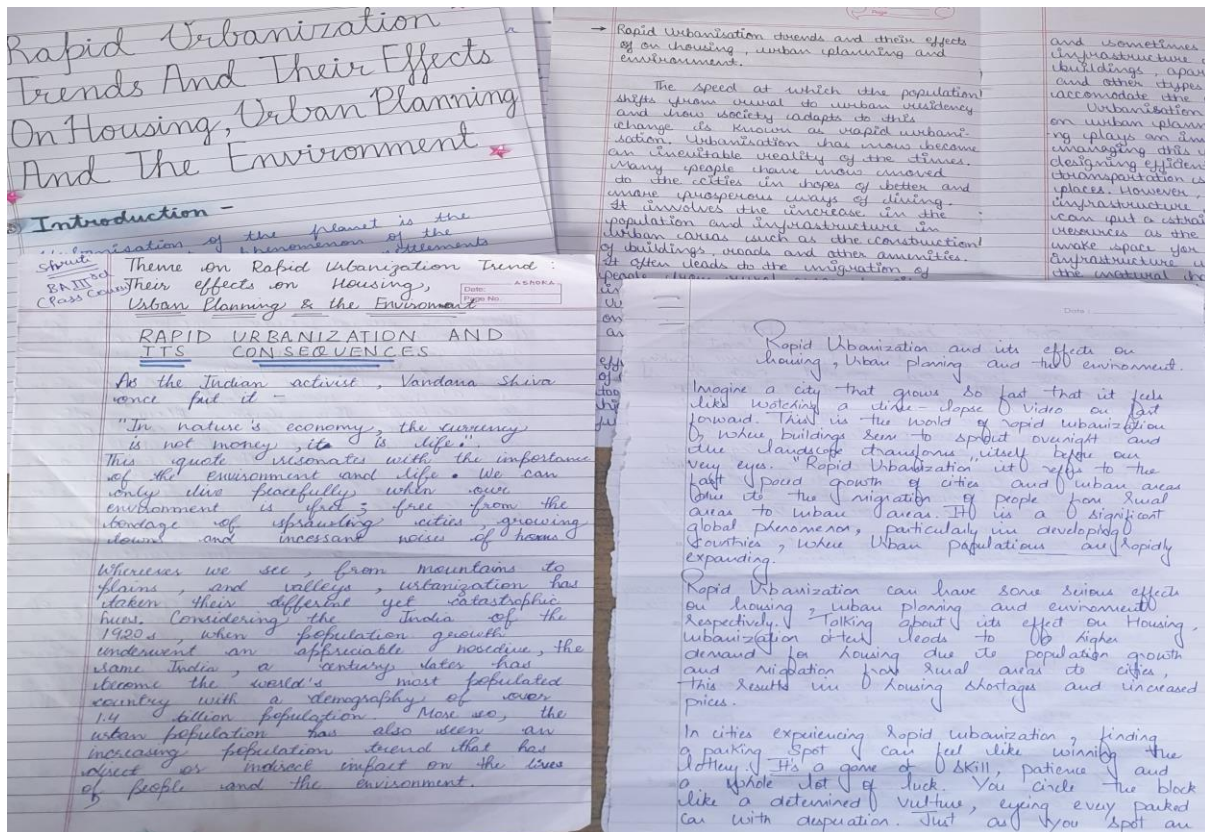 Rapid Urbanization
Trends And Their Effects
On Housing, Urban Planning
And The Environment
Introduction -
of the planet is the
phenomenon of the
settlements
→ Rapid Urbanisation trends and their effects
of on housing, urban planning and
environment.
The speed at which the population
shifts from rural to urban residency
and how society adapts to this
change is known as rapid urbani-
sation. Urbanisation has now become
an inevitable reality of the times.
Many people have now moved
to the cities in hopes of better and
more prosperous ways of living.
It involves the increase in the
population and infrastructure in
urban areas such as the construction
of buildings, roads and other amenities.
It often leads to the migration of
and sometimes
infrastructure
buildings, apar
and other types
accomodate the
Urbanisation
on urban plann
ng plays an im
managing this
designing efficien
transportation is
places. However
infrastructure
can put a strai
resources as the
make space for
infrastructure
the natural ha
Shruti
BA III Sd
Class
Theme on Rapid Urbanization Trend :
Their effects on Housing,
Urban Planning & the Enviroment
Date:
ASHOKA
Page No.
RAPID URBANIZATION AND
ITS CONSEQUENCES
As the Indian activist, Vandana Shiva
once put it -
"In nature's economy, the currency
is not money, it is life".
This quote resonates with the importance
of the environment and life. We can
only live peacefully when our
environment is free; free from the
bondage of sprawling cities, growing
towns and incessant noises of horns
Wherever we see, from mountains to
plains, and valleys, urbanization has
taken their different yet catastrophic
hues. Considering the India of the
1920s, when population growth
underwent an appreciable nosedive, the
same India, a century later has
become the world's most populated
country with a demography of over
1.4 billion population. More so, the
urban population has also seen an
increasing population trend that has
direct or indirect impact on the lives
of people and the environment.
Date :
Rapid Urbanization and its effects on
housing, Urban planing and the environment.
Imagine a city that grows so fast that it feels
like watching a time-lapse video on fast
forward. This is the world of rapid urbanization
where buildings seem to sprout overnight and
the landscape transforms itself before our
very eyes. "Rapid Urbanization it refers to the
fast paced growth of cities and urban areas
due to the migration of people from rural
areas to urban areas. It is a significant
global phenomenon, particularly in developing
countries, where Urban populations are rapidly
expanding.
Rapid Urbanization can have some serious effects
on housing, urban planing and environment
respectively. Talking about its effect on Housing,
urbanization often leads to higher
demand for housing due to population growth
and migration from rural areas to cities,
this results in housing shortages and increased
prices.
In cities experiencing rapid urbanization, finding
a parking spot can feel like winning the
lottery. It's a game of skill, patience and
a whole lot of luck. You circle the block
like a determined vulture, eyeing every parked
car with desperation. Just as you spot an